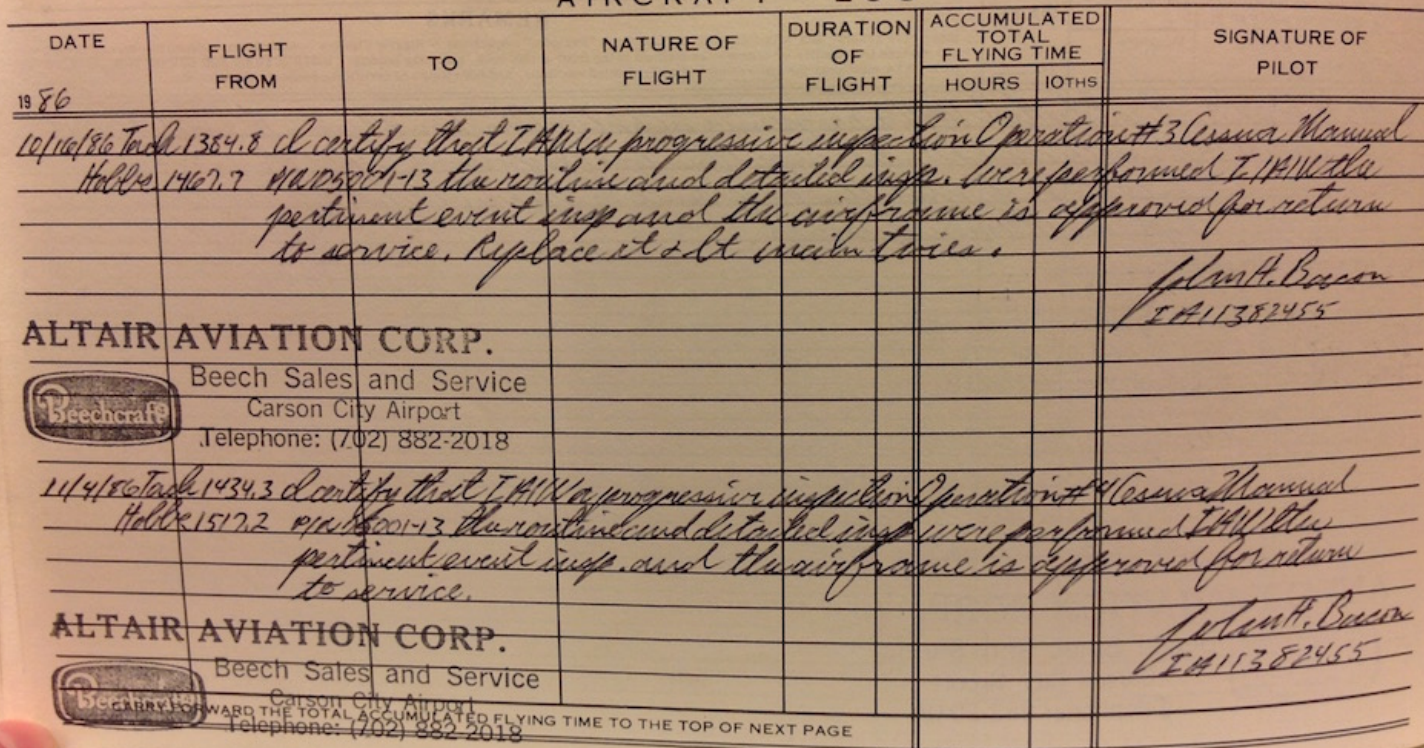 DATE
FLIGHT FROM
TO
NATURE OF FLIGHT
DURATION OF FLIGHT
ACCUMULATED TOTAL FLYING TIME
HOURS
10THS
SIGNATURE OF PILOT
19 86
10/16/86 Tach 1384.8 I certify that IAW a progressive inspection Operation #3 Cessna Manual
Hobbs 1467.7 P/N D5001-13 the routine and detailed insp. were performed IAW the
pertinent event insp and the airframe is approved for return
to service. Replace rt & lt main tires.
John H. Bacon
IA11382455
ALTAIR AVIATION CORP.
Beechcraft
Beech Sales and Service
Carson City Airport
Telephone: (702) 882-2018
11/4/86 Tach 1434.3 I certify that IAW a progressive inspection Operation #4 Cessna Manual
Hobbs 1517.2 P/N D5001-13 the routine and detailed insp were performed IAW the
pertinent event insp. and the airframe is approved for return
to service.
John H. Bacon
IA11382455
ALTAIR AVIATION CORP.
Beechcraft
Beech Sales and Service
Carson City Airport
CARRY FORWARD THE TOTAL ACCUMULATED FLYING TIME TO THE TOP OF NEXT PAGE
Telephone: (702) 882-2018